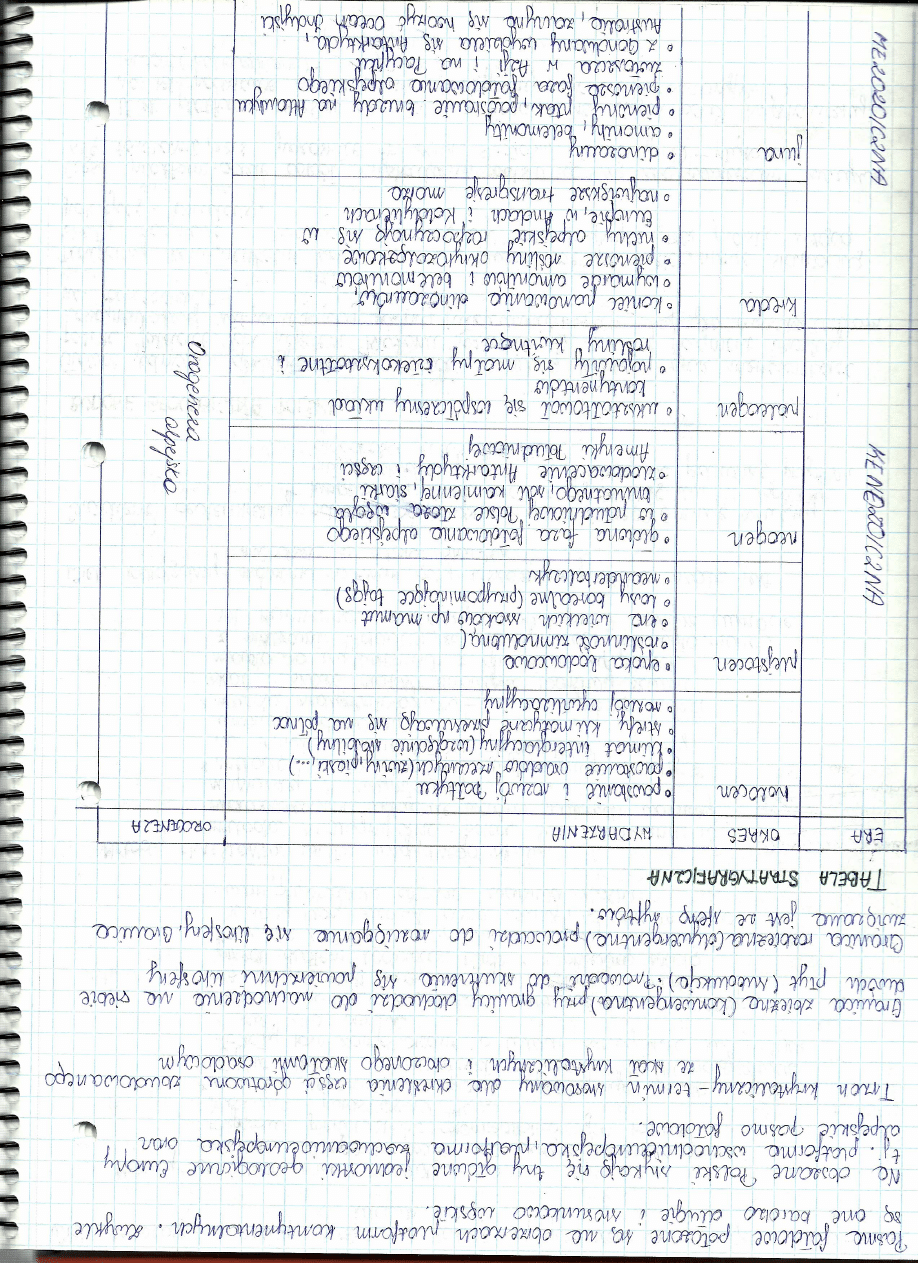 Pasma fałdowe położone są na obrzeżach platform kontynentalnych. Zwykle
są one bardzo długie i stosunkowo wąskie.
Na obszarze Polski stykają się trzy główne jednostki geologiczne Europy
tj. platforma wschodnioeuropejska, platforma zachodnioeuropejska oraz
alpejskie pasmo fałdowe.
Trzon krystaliczny - termin stosowany dla określenia części górotworu zbudowanego
ze skał krystalicznych i otoczonego skałami osadowym
Granica zbieżna (konwergentna) przy granicy dochodzi do nachodzenia na siebie
dwóch płyt (subdukcja). Prowadzi do skurczenia się powierzchni litosfery
Granica rozbieżna (dywergentna) prowadzi do rozciągania się litosfery. Granica
związana jest ze strefą ryftów.
TABELA STRATYGRAFICZNA
ERA OKRES WYDARZENIA OROGENEZA
KENOZOICZNA
holocen
• powstanie i rozwój Bałtyku
• powstanie osadów rzecznych (żwiry, piaski, ...)
• klimat interglacjalny (względnie stabilny)
• strefy klimatyczne przesuwają się na północ
• rozwój cywilizacyjny
plejstocen
• epoka lodowcowa
• roślinność zimnolubna
• era wielkich ssaków np. mamut
• lasy borealne (przypominające tajgę)
• neandertalczyk
neogen
• główna faza fałdowania alpejskiego
• w południowej Polsce złoża węgla
brunatnego, soli kamiennej, siarki
• zlodowacenie Antarktydy i części
Ameryki Południowej
paleogen
• ukształtował się współczesny układ
kontynentów
• pojawiły się małpy człekokształtne i
rośliny kwitnące
Orogeneza
alpejska
MEZOZOICZNA
kreda
• koniec panowania dinozaurów,
• wymarcie amonitów i belemnitów
• pierwsze rośliny okrytozalążkowe
• ruchy alpejskie rozpoczynają się w
Europie, w Andach i Kordylierach
• największe transgresje morza
jura
• dinozaury
• amonity, belemnity
• pierwszy ptak, powstanie bruzdy na Atlantyku
• pierwsza faza fałdowania alpejskiego
zwłaszcza w Azji i na Pacyfiku
• z Gondwany wydziela się Antarktyda,
Australia, zaczyna się tworzyć Ocean Indyjski